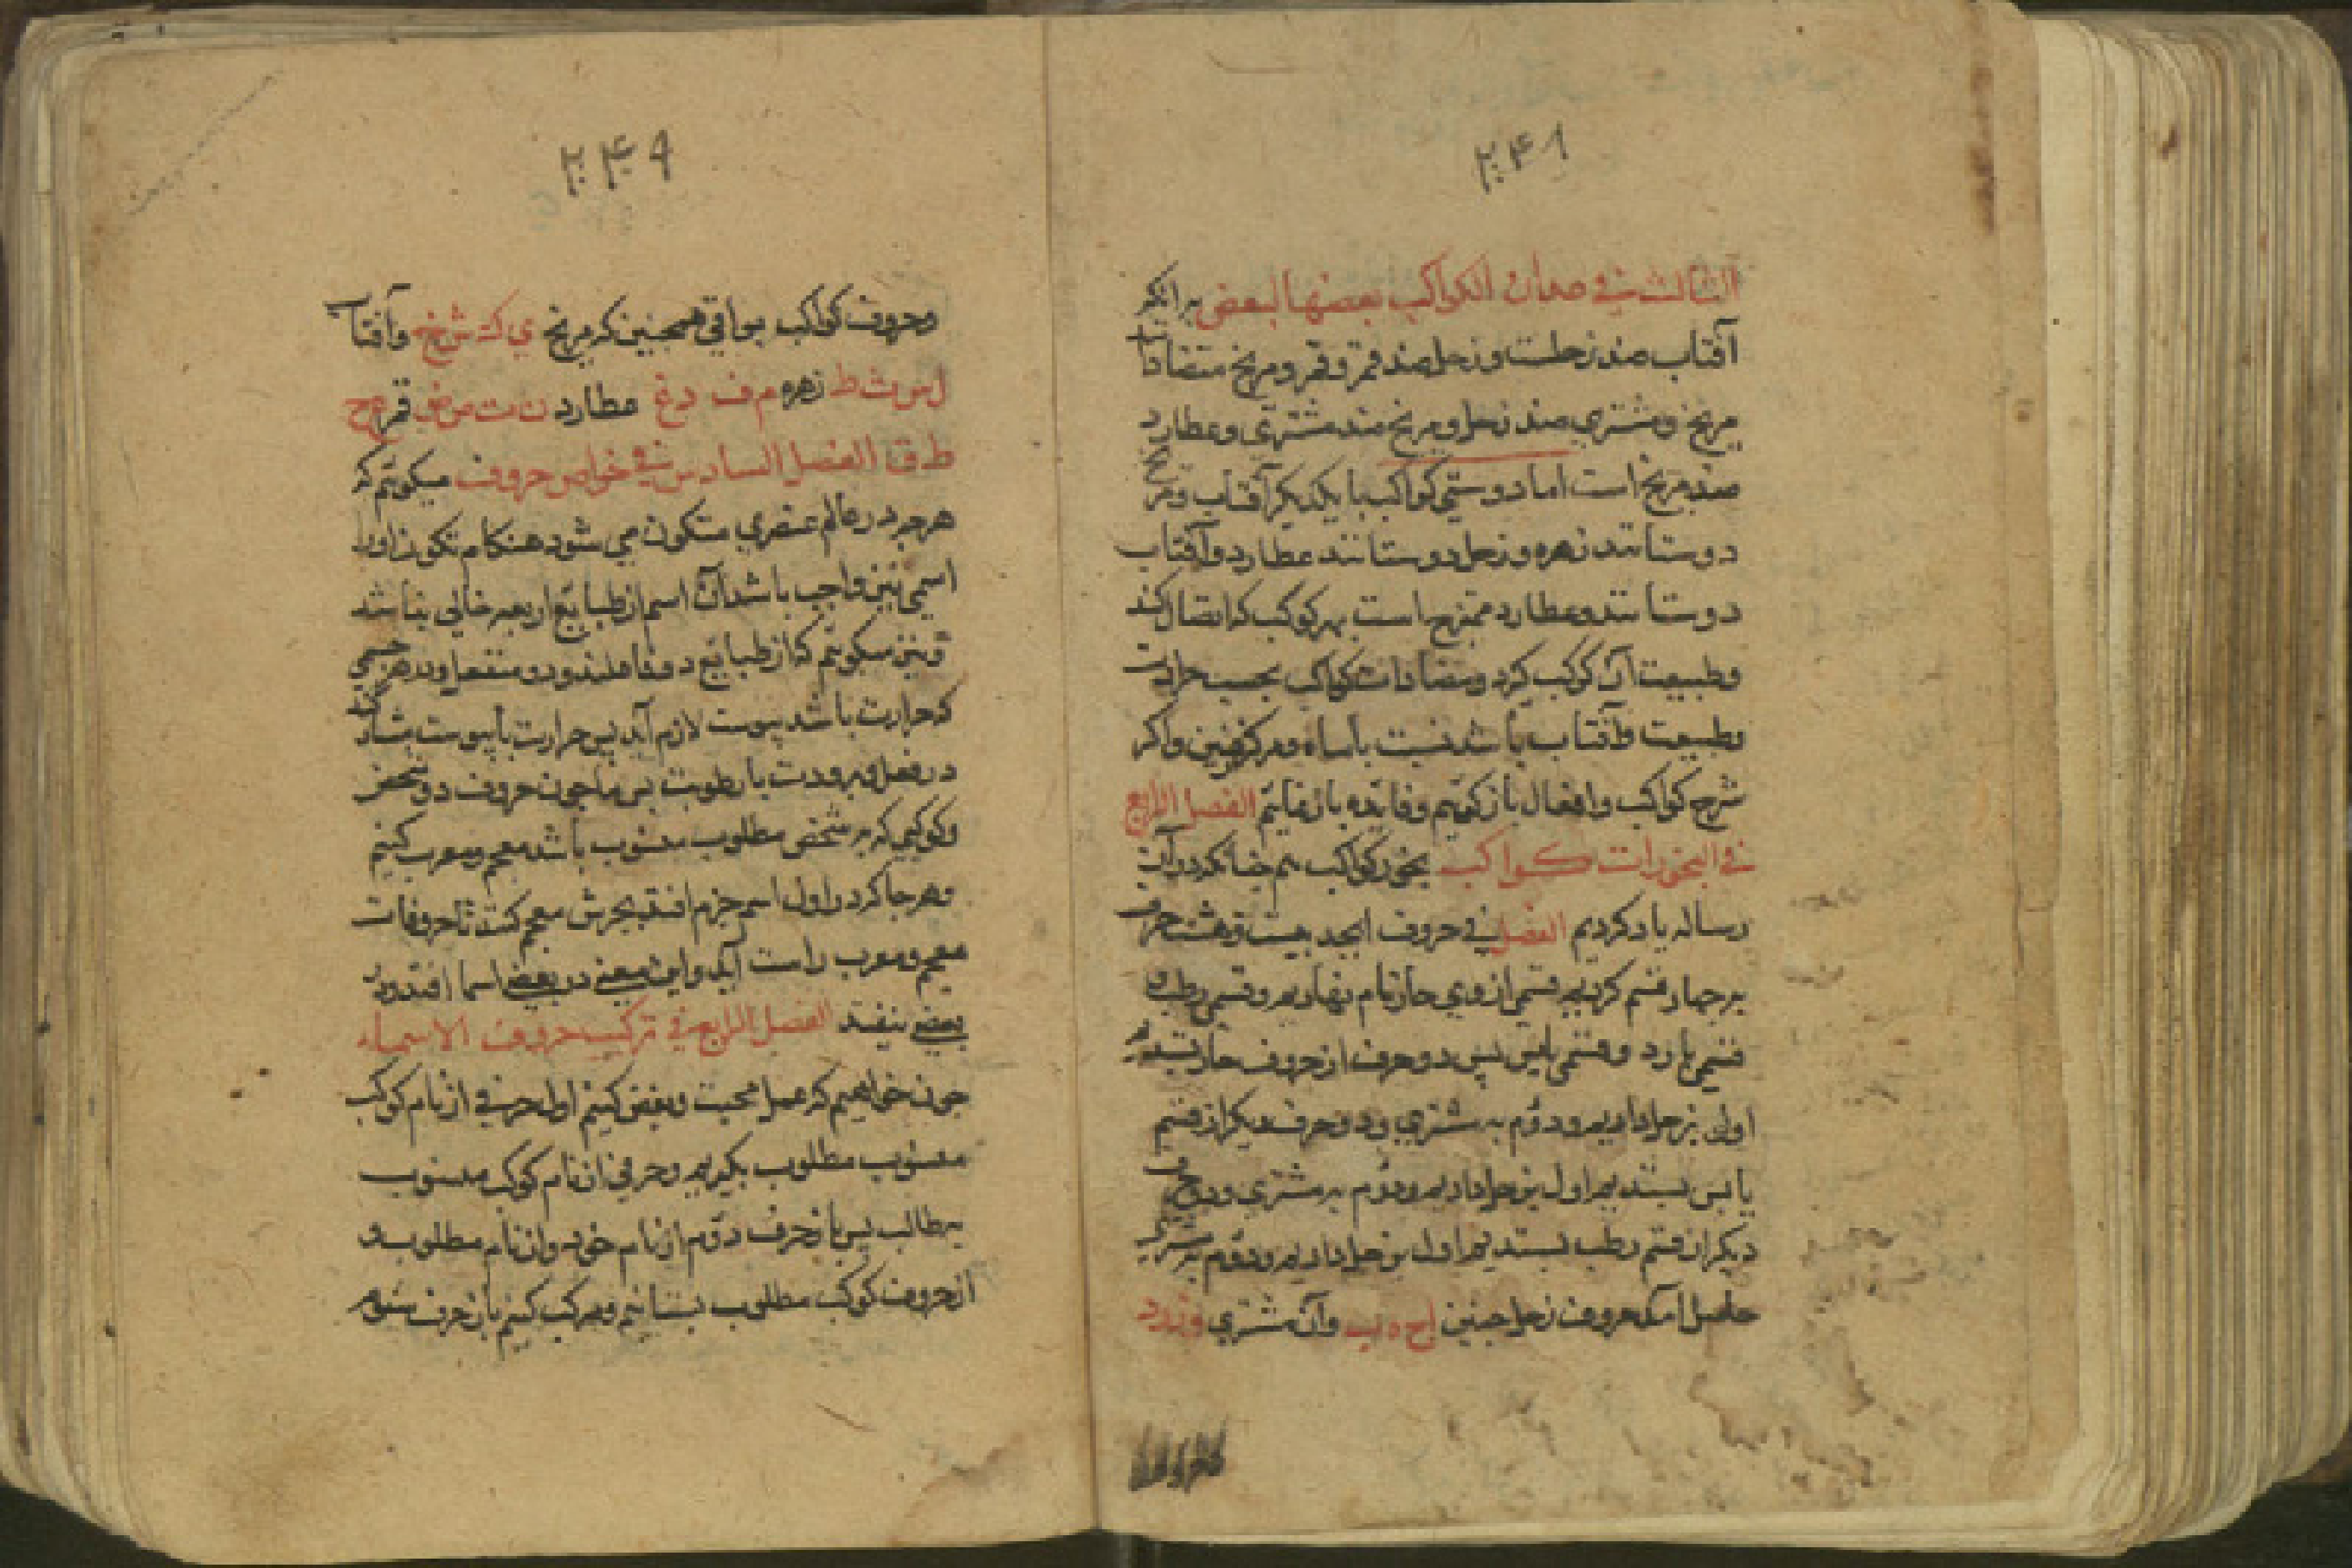 ۲۴۸
الثالث في معادات الكواكب بعضها لبعض بدانكه
آفتاب ضد زحلست و زحل ضد قمر و قمر و مريخ متضادانند
مريخ و مشتري ضد زحل و مريخ ضد مشتري و عطارد
ضد مريخ است اما دوستي كواكب با يكديكر آفتاب و مريخ
دوستانند زهره و زحل دوستانند عطارد و آفتاب
دوستانند و عطارد ممتزج است بهر كوكب كه اتصال كند
و طبيعت آن كوكب كيرد و متضادات كواكب بحسب حرارت
و طبيعت و آفتاب باشد نسبت با ماه و مركز زمين و اكر
شرح كواكب و افعال باز كوئيم و فايده باز نمائيم الفصل الرابع
في البخورات كواكب بخور كواكب هم چنانكه در آن
رساله ياد كرديم الفصل في حروف ابجد بيست و هشت حرف
بر چهار قسم كرديم قسمي از وي حار نام نهاديم و قسمي رطب و
قسمي بارد و قسمي يابس پس دو حرف از حروف حار بستديم
اول بزحل داديم و دوم به مشتري و دو حرف ديكر از قسم
يابس بستديم اول بزحل داديم و دوم به مشتري و دو حرف
ديكر از قسم رطب بستديم اول بزحل داديم و دوم به مشتري
حاصل آمد حروف زحل چنين اح ه ب و آن مشتري وزدد
۲۴۹
و حروف كواكب بواقي همچنين كه مريخ ي ك ش خ و آفتاب
ل س ث ظ زهره م ف د غ عطارد ن ت ص ض قمر ع ح
ط ق الفصل السادس في خواص حروف ميكوئيم كه
هرچه در عالم عنصري متكون مي شود هنكام تكون او را
اسمي نيز واجب باشد آن اسم از طبايع اربعه خالي نباشد
و نيز ميكوئيم كه از طبايع دو فاعلند و دو منفعل و در هر جسمي
كه حرارت باشد يبوست لازم آيد پس حرارت با يبوست مشاركند
در فعل و برودت با رطوبت پس ما چون حروف دو شخص
و كوكبي كه بر شخص مطلوب منسوب باشد معجم و معرب كنيم
و هرجا كه در اول اسم جزم افتد بجرش معجم كنند تا حروفات
معجم و معرب راست آيد و اين معني در بعضي اسما افتد و در
بعضي نيفتد الفصل الرابع في تركيب حروف الاسماء
چون خواهيم كه عمل محبت و بغض كنيم اول حرفي از نام كوكب
منسوب مطلوب بكيريم و حرفي از نام كوكب منسوب
به طالب پس باز حرف دوم از نام خود و از نام مطلوب و
از حروف كوكب مطلوب بستانيم و مركب كنيم باز حرف سوم